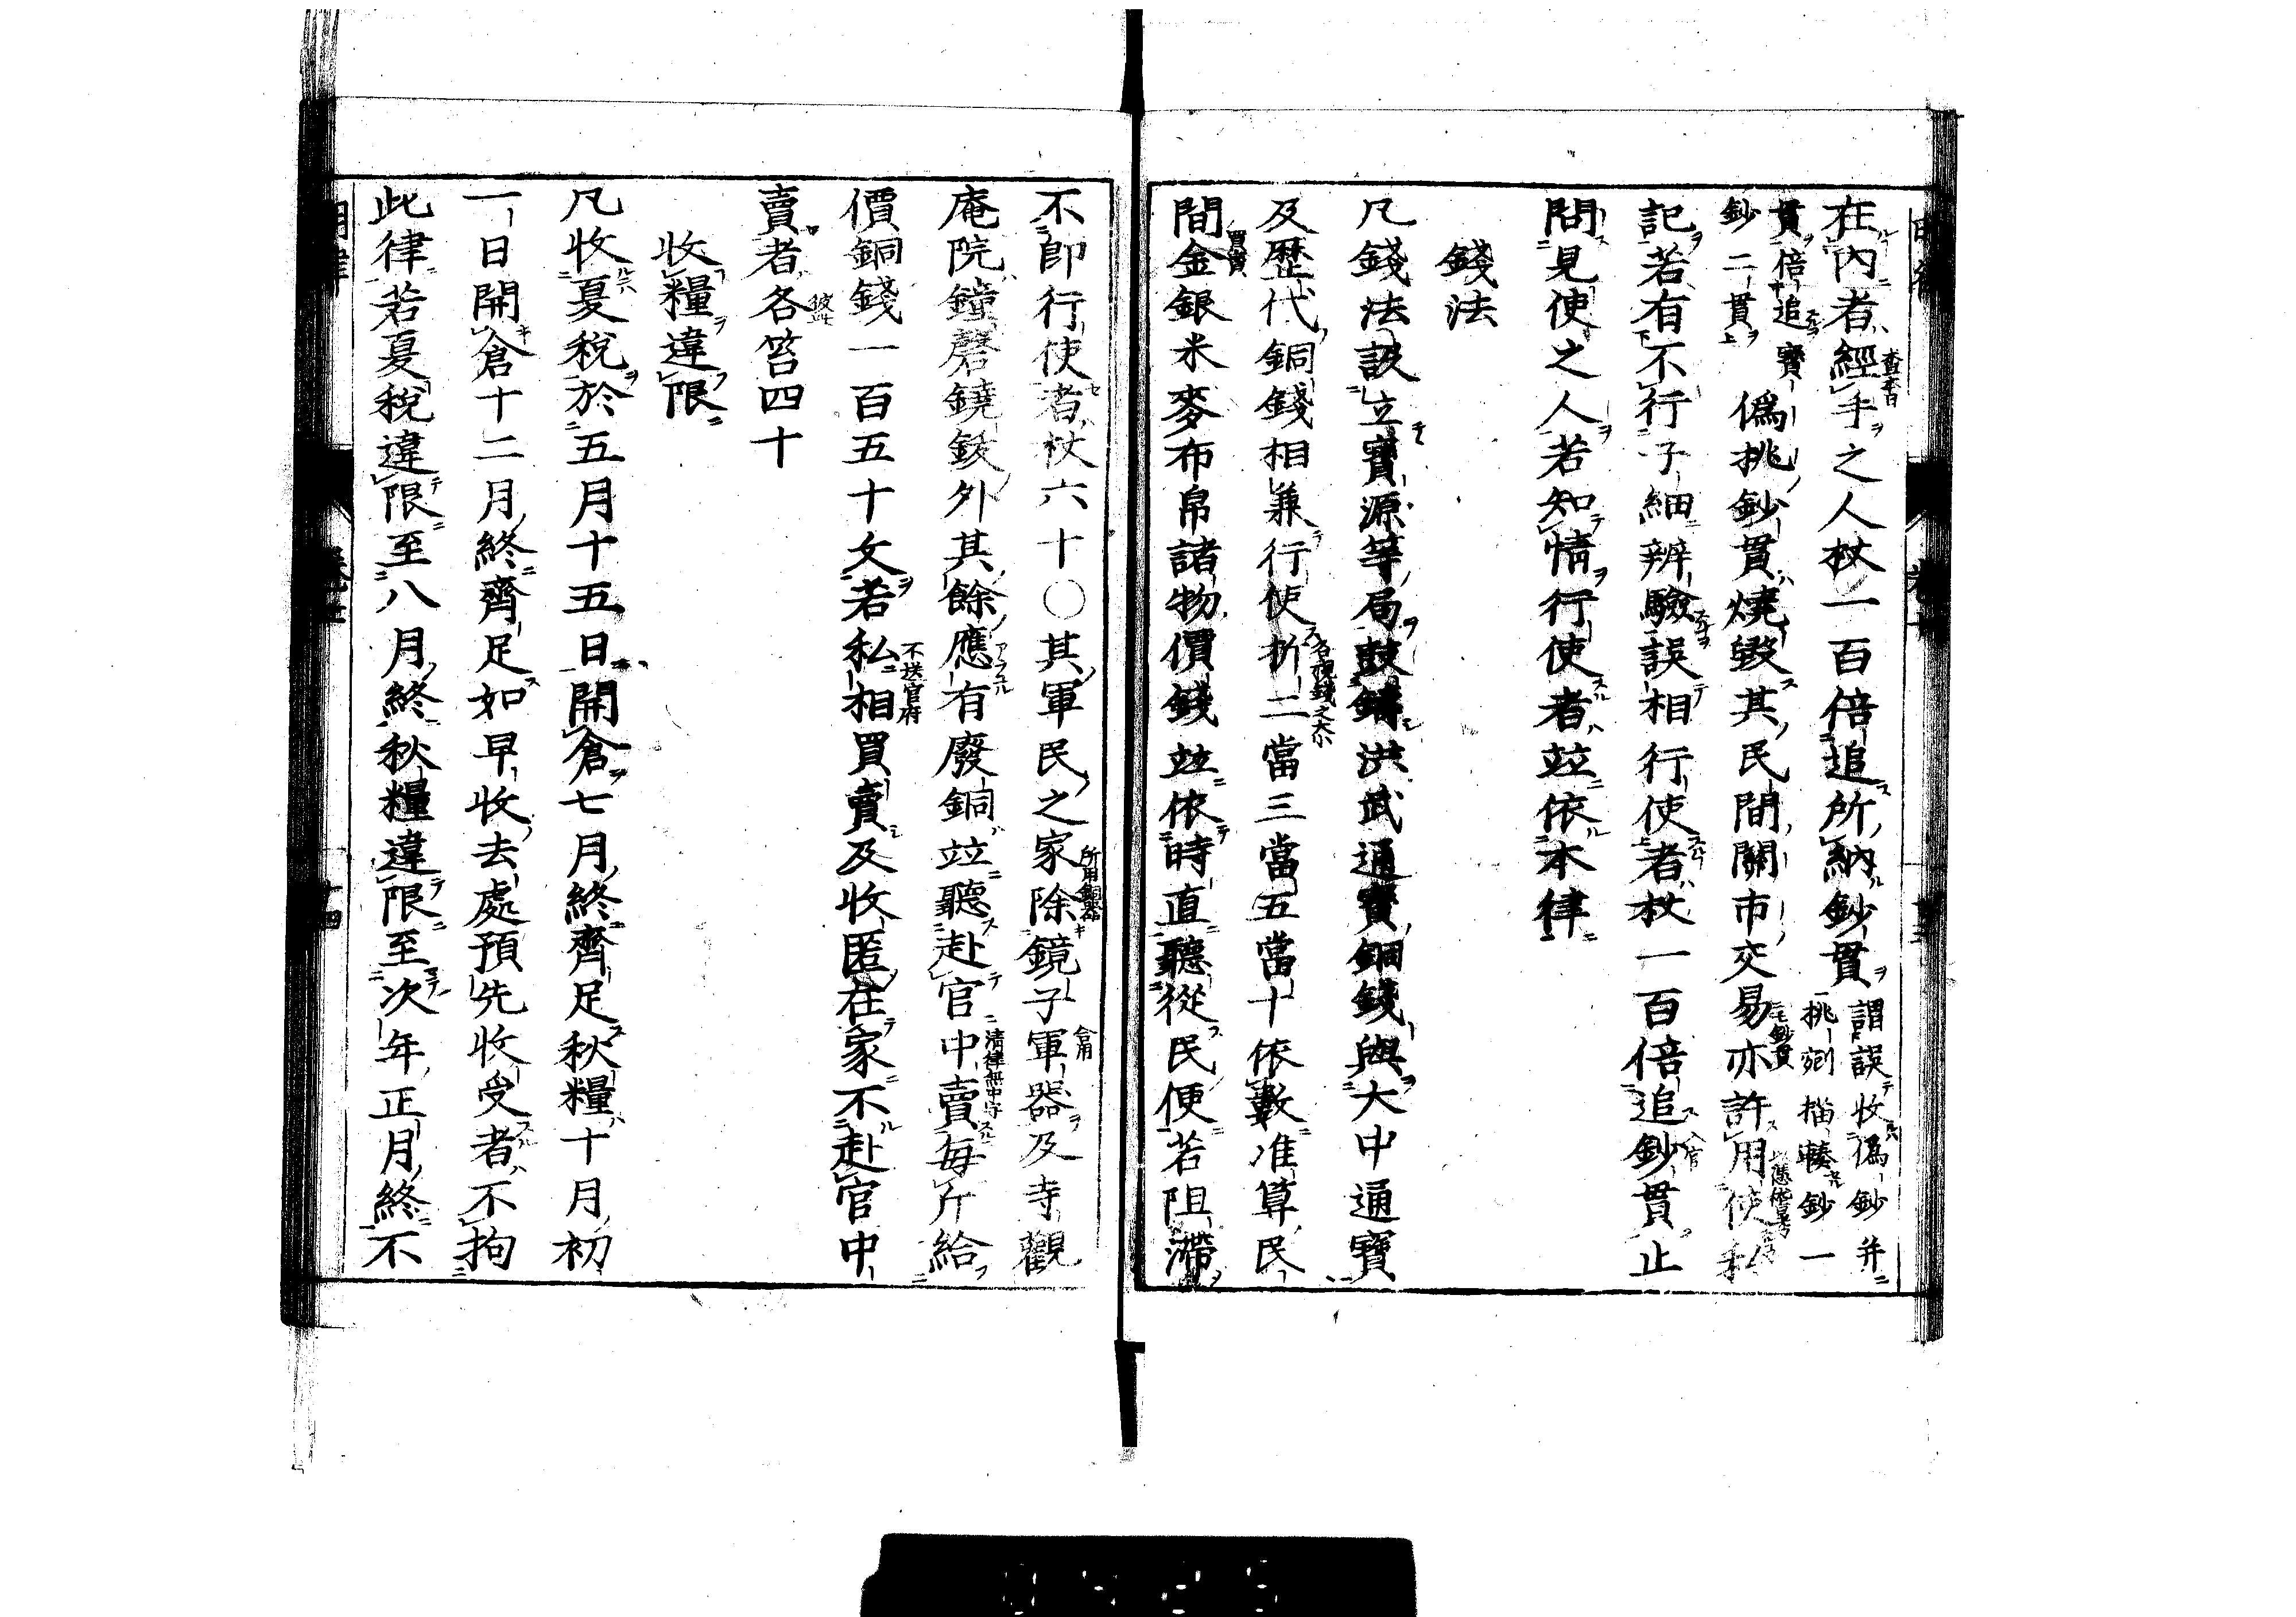 在內者經手之人杖一百倍追所納鈔貫謂誤收偽鈔并挑剜描輳鈔一
貫倍追寶鈔二貫偽挑鈔貫燒毀其民間關市交易亦許用使私
記若有不行子細辨驗誤相行使者杖一百倍追鈔貫止
問見使之人若知情行使者竝依本律
錢法
凡錢法設立寶源等局鼓鑄洪武通寶銅錢與大中通寶
及歷代銅錢相兼行使折二當三當五當十依數准算民
間金銀米麥布帛諸物價錢竝依時直聽從民便若阻滯
不即行使者杖六十○其軍民之家除鏡子軍器及寺觀
庵院鐘磬鐃鈸外其餘應有廢銅竝聽赴官中賣每斤給
價銅錢一百五十文若私相買賣及收匿在家不赴官中
賣者各笞四十
收糧違限
凡收夏稅於五月十五日開倉七月終齊足秋糧十月初
一日開倉十二月終齊足如早收去處預先收受者不拘
此律若夏稅違限至八月終秋糧違限至次年正月終不
買賣
各視錢之大小
所用銅器
合用
清律無中字
不送官府
彼此
入官